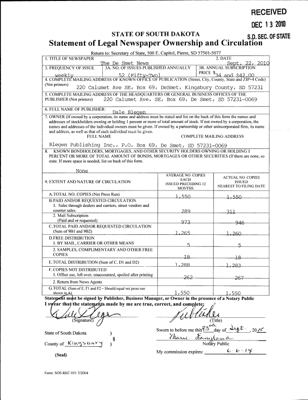 RECEIVED
DEC 13 2010
S.D. SEC. OF STATE
STATE OF SOUTH DAKOTA
Statement of Legal Newspaper Ownership and Circulation
Return to: Secretary of State, 500 E. Capitol, Pierre, SD 57501-5077
1. TITLE OF NEWSPAPER
The De Smet News
2. DATE
Sept. 22, 2010
3. FREQUENCY OF ISSUE
weekly
3A. NO. OF ISSUES PUBLISHED ANNUALLY
52 (Fifty-Two)
3B. ANNUAL SUBSCRIPTION
PRICE $34 and $42.00
4. COMPLETE MAILING ADDRESS OF KNOWN OFFICE OF PUBLICATION (Street, City, County, State and ZIP+4 Code)
(Not printers)
220 Calumet Ave SE, Box 69, DeSmet, Kingsbury County, SD 57231
5. COMPLETE MAILING ADDRESS OF THE HEADQUARTERS OF GENERAL BUSINESS OFFICES OF THE
PUBLISHER (Not printers)
220 Calumet Ave. SE, Box 69, De Smet, SD 57231-0069
6. FULL NAME OF PUBLISHER
Dale Blegen
7. OWNER (If owned by a corporation, its name and address must be stated and list on the back of this form the names and
addresses of stockholders owning or holding 1 percent or more of total amount of stock. If not owned by a corporation, the
names and addresses of the individual owners must be given. If owned by a partnership or other unincorporated firm, its name
and address, as well as that of each individual must be given.
FULL NAME
COMPLETE MAILING ADDRESS
Blegen Publishing Inc., P.O. Box 69, De Smet, SD 57231-0069
8. KNOWN BONDHOLDERS, MORTGAGEES, AND OTHER SECURITY HOLDERS OWNING OR HOLDING 1
PERCENT OR MORE TOTAL AMOUNT OF BONDS, MORTGAGES OR OTHER SECURITIES (If there are none, so
state. If more space is needed, list on back of this form.
None
9. EXTENT AND NATURE OF CIRCULATION
AVERAGE NO. COPIES
EACH
ISSUED PRECEDING 12
MONTHS
ACTUAL NO. COPIES
ISSUED
NEAREST TO FILING DATE
A. TOTAL NO. COPIES (Net Press Run)
1,550
1,550
B. PAID AND/OR REQUESTED CIRCULATION
1. Sales through dealers and carriers, street vendors and
counter sales.
389
311
2. Mail Subscription
(Paid and/or requested)
873
946
C. TOTAL PAID AND/OR REQUESTED CIRCULATION
(Sum of 9B1 and 9B2)
1,265
1,260
D. FREE DISTRIBUTION
1. BY MAIL, CARRIER OR OTHER MEANS
5
5
2. SAMPLES, COMPLIMENTARY AND OTHER FREE
COPIES
18
18
E. TOTAL DISTRIBUTION (Sum of C, D1 and D2)
1,288
1,283
F. COPIES NOT DISTRIBUTED
1. Office use, left over, unaccounted, spoiled after printing
262
267
2. Return from News Agents
G. TOTAL (Sum of E, F1 and F2 - Should equal net press run
shown in A)
1,550
1,550
Statement must be signed by Publisher, Business Manager, or Owner in the presence of a Notary Public
I swear that the statements made by me are true, correct, and complete:
Publisher
(Signature)
(Title)
State of South Dakota )
County of Kingsbury )
(Seal)
Sworn to before me this 23rd day of Sept, 2010
Notary Public
My commission expires: 6-6-14